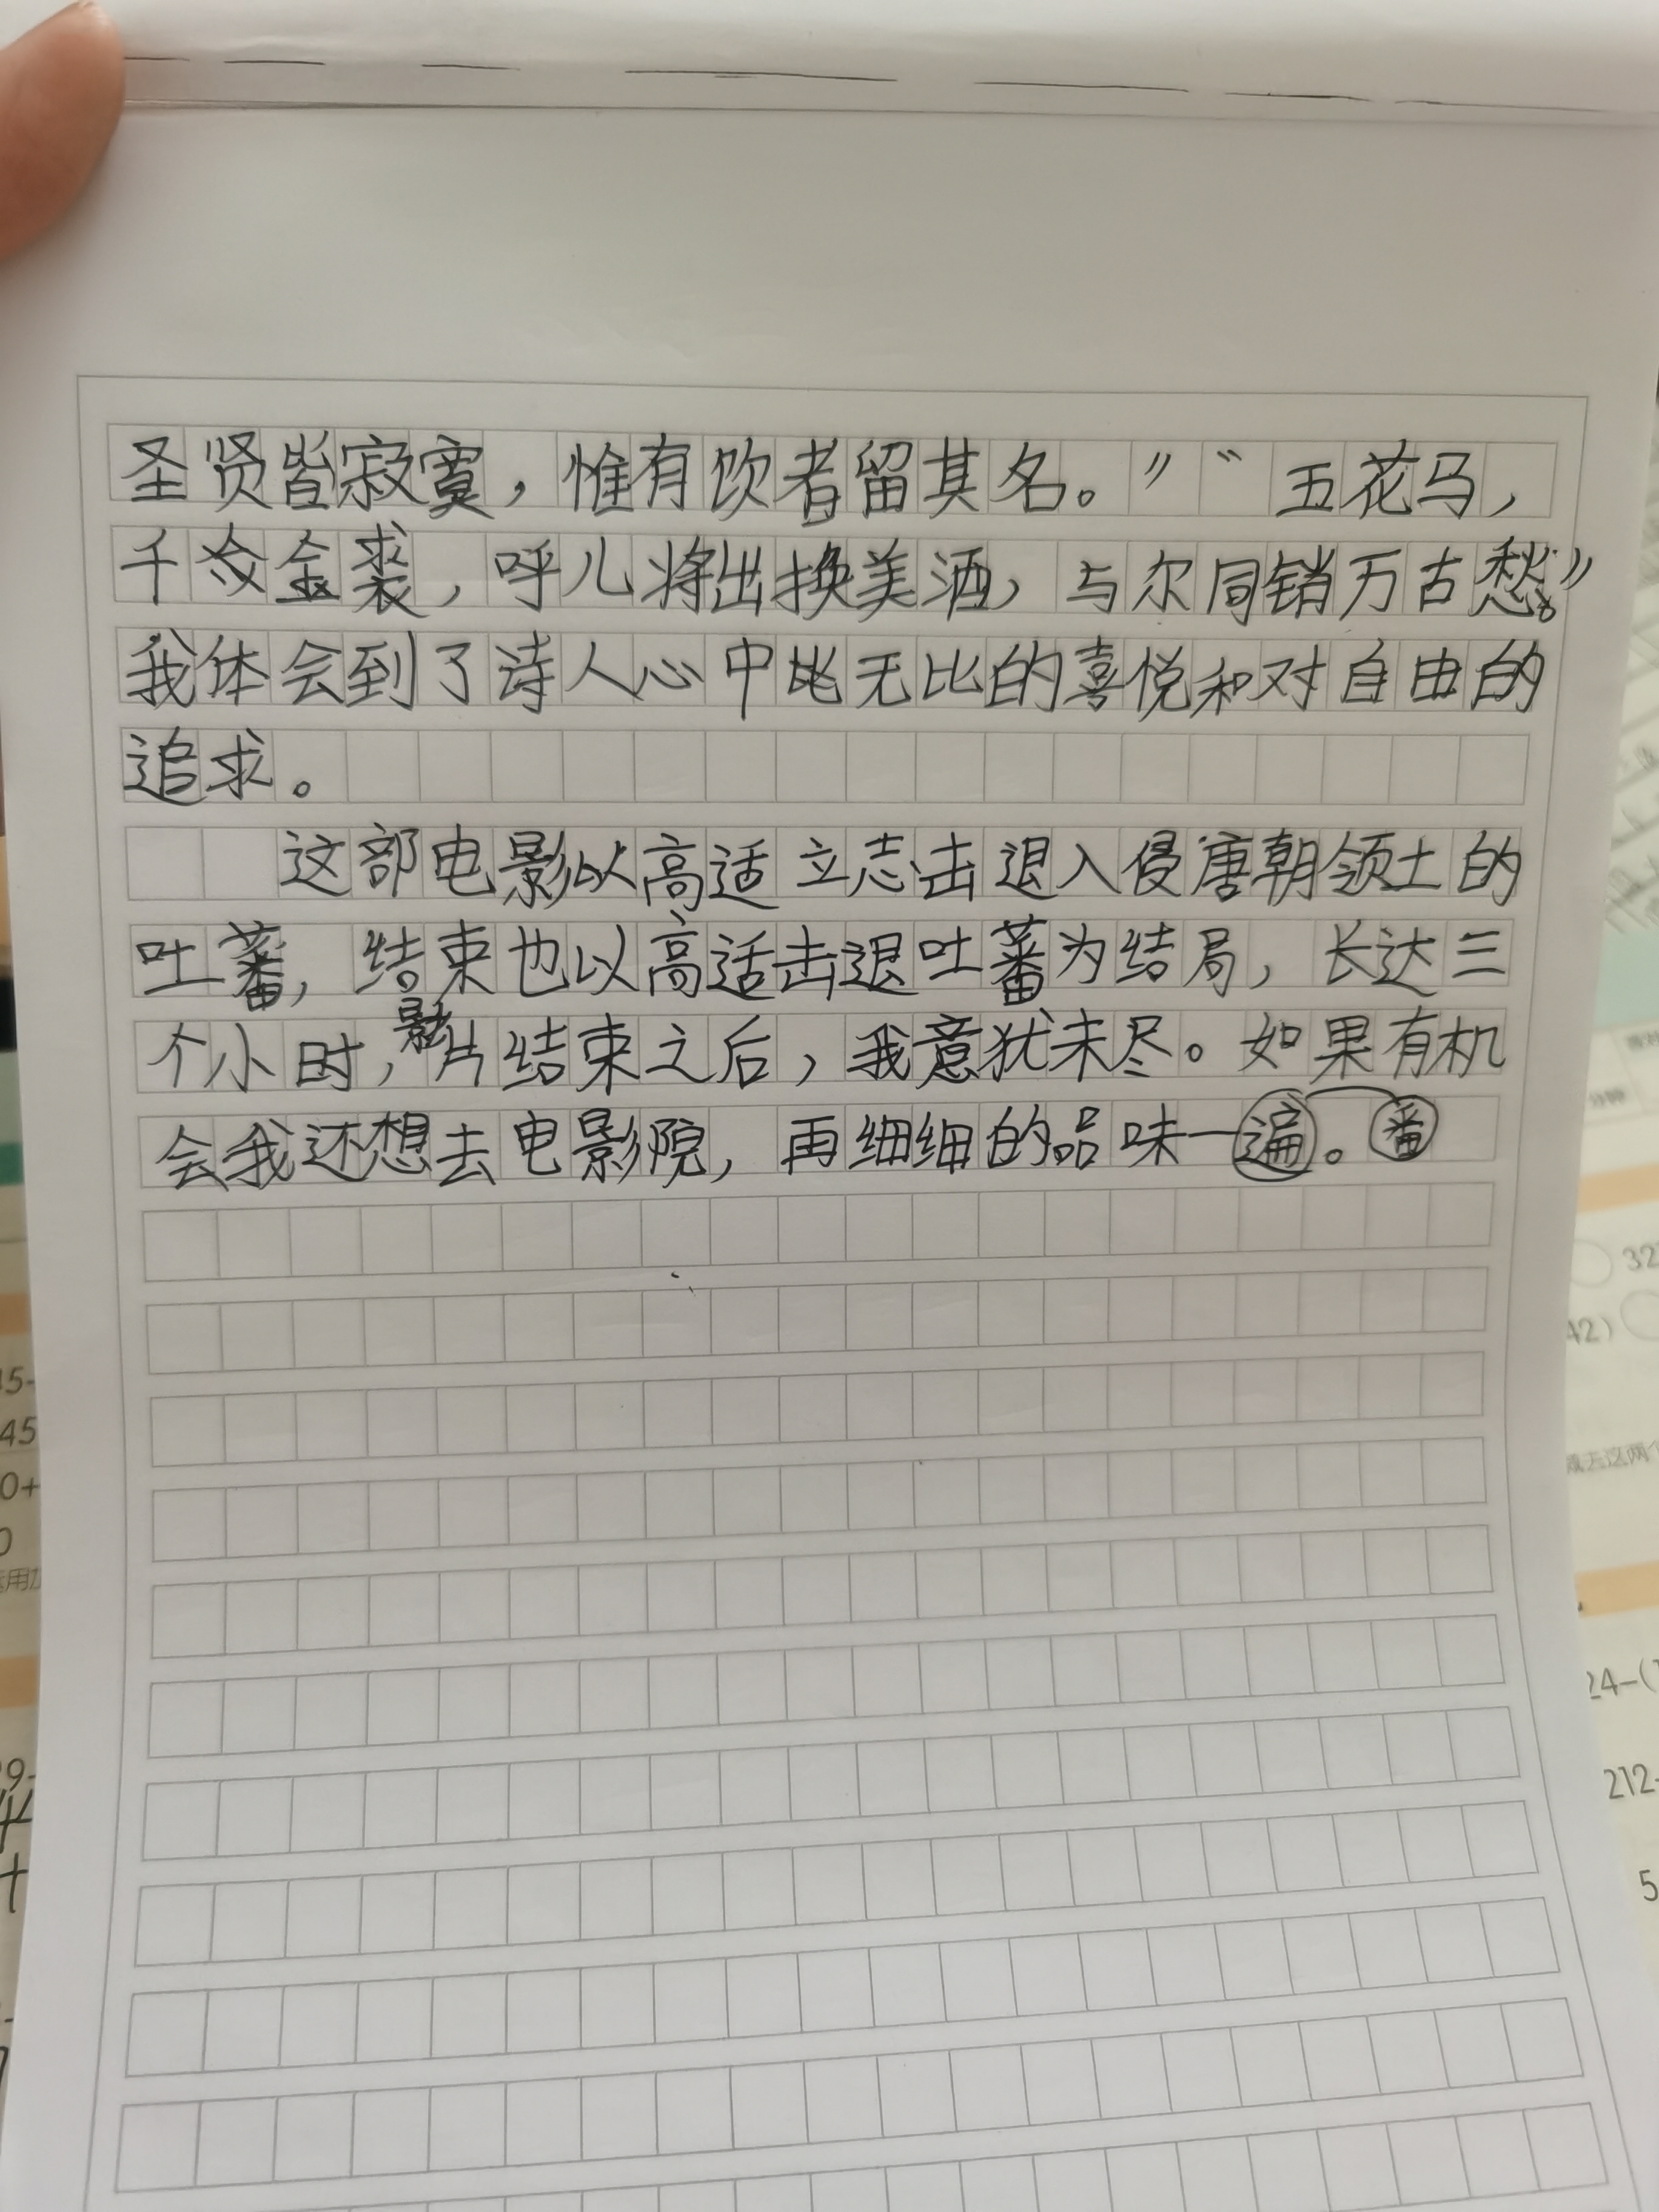 圣贤皆寂寞，惟有饮者留其名。”“五花马，
千金裘，呼儿将出换美酒，与尔同销万古愁。”
我体会到了诗人心中无比的喜悦和对自由的
追求。
这部电影以高适立志击退入侵唐朝领土的
吐蕃，结束也以高适击退吐蕃为结局，长达三
个小时，影片结束之后，我意犹未尽。如果有机
会我还想去电影院，再细细的品味一遍。番
32
42）
15-
45
0+
0
24-(
212-
5
9-